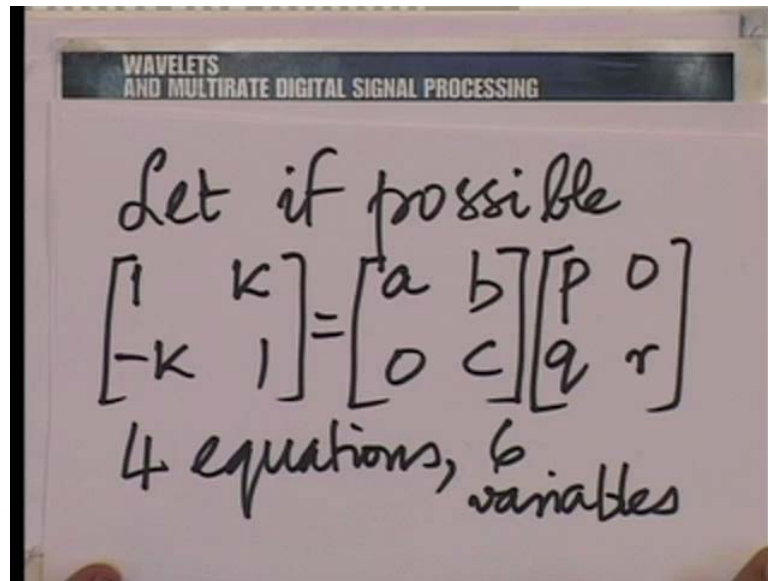 WAVELETS
AND MULTIRATE DIGITAL SIGNAL PROCESSING
Let if possible
[1 K; -K 1] = [a b; 0 c] [p 0; q r]
4 equations, 6
variables